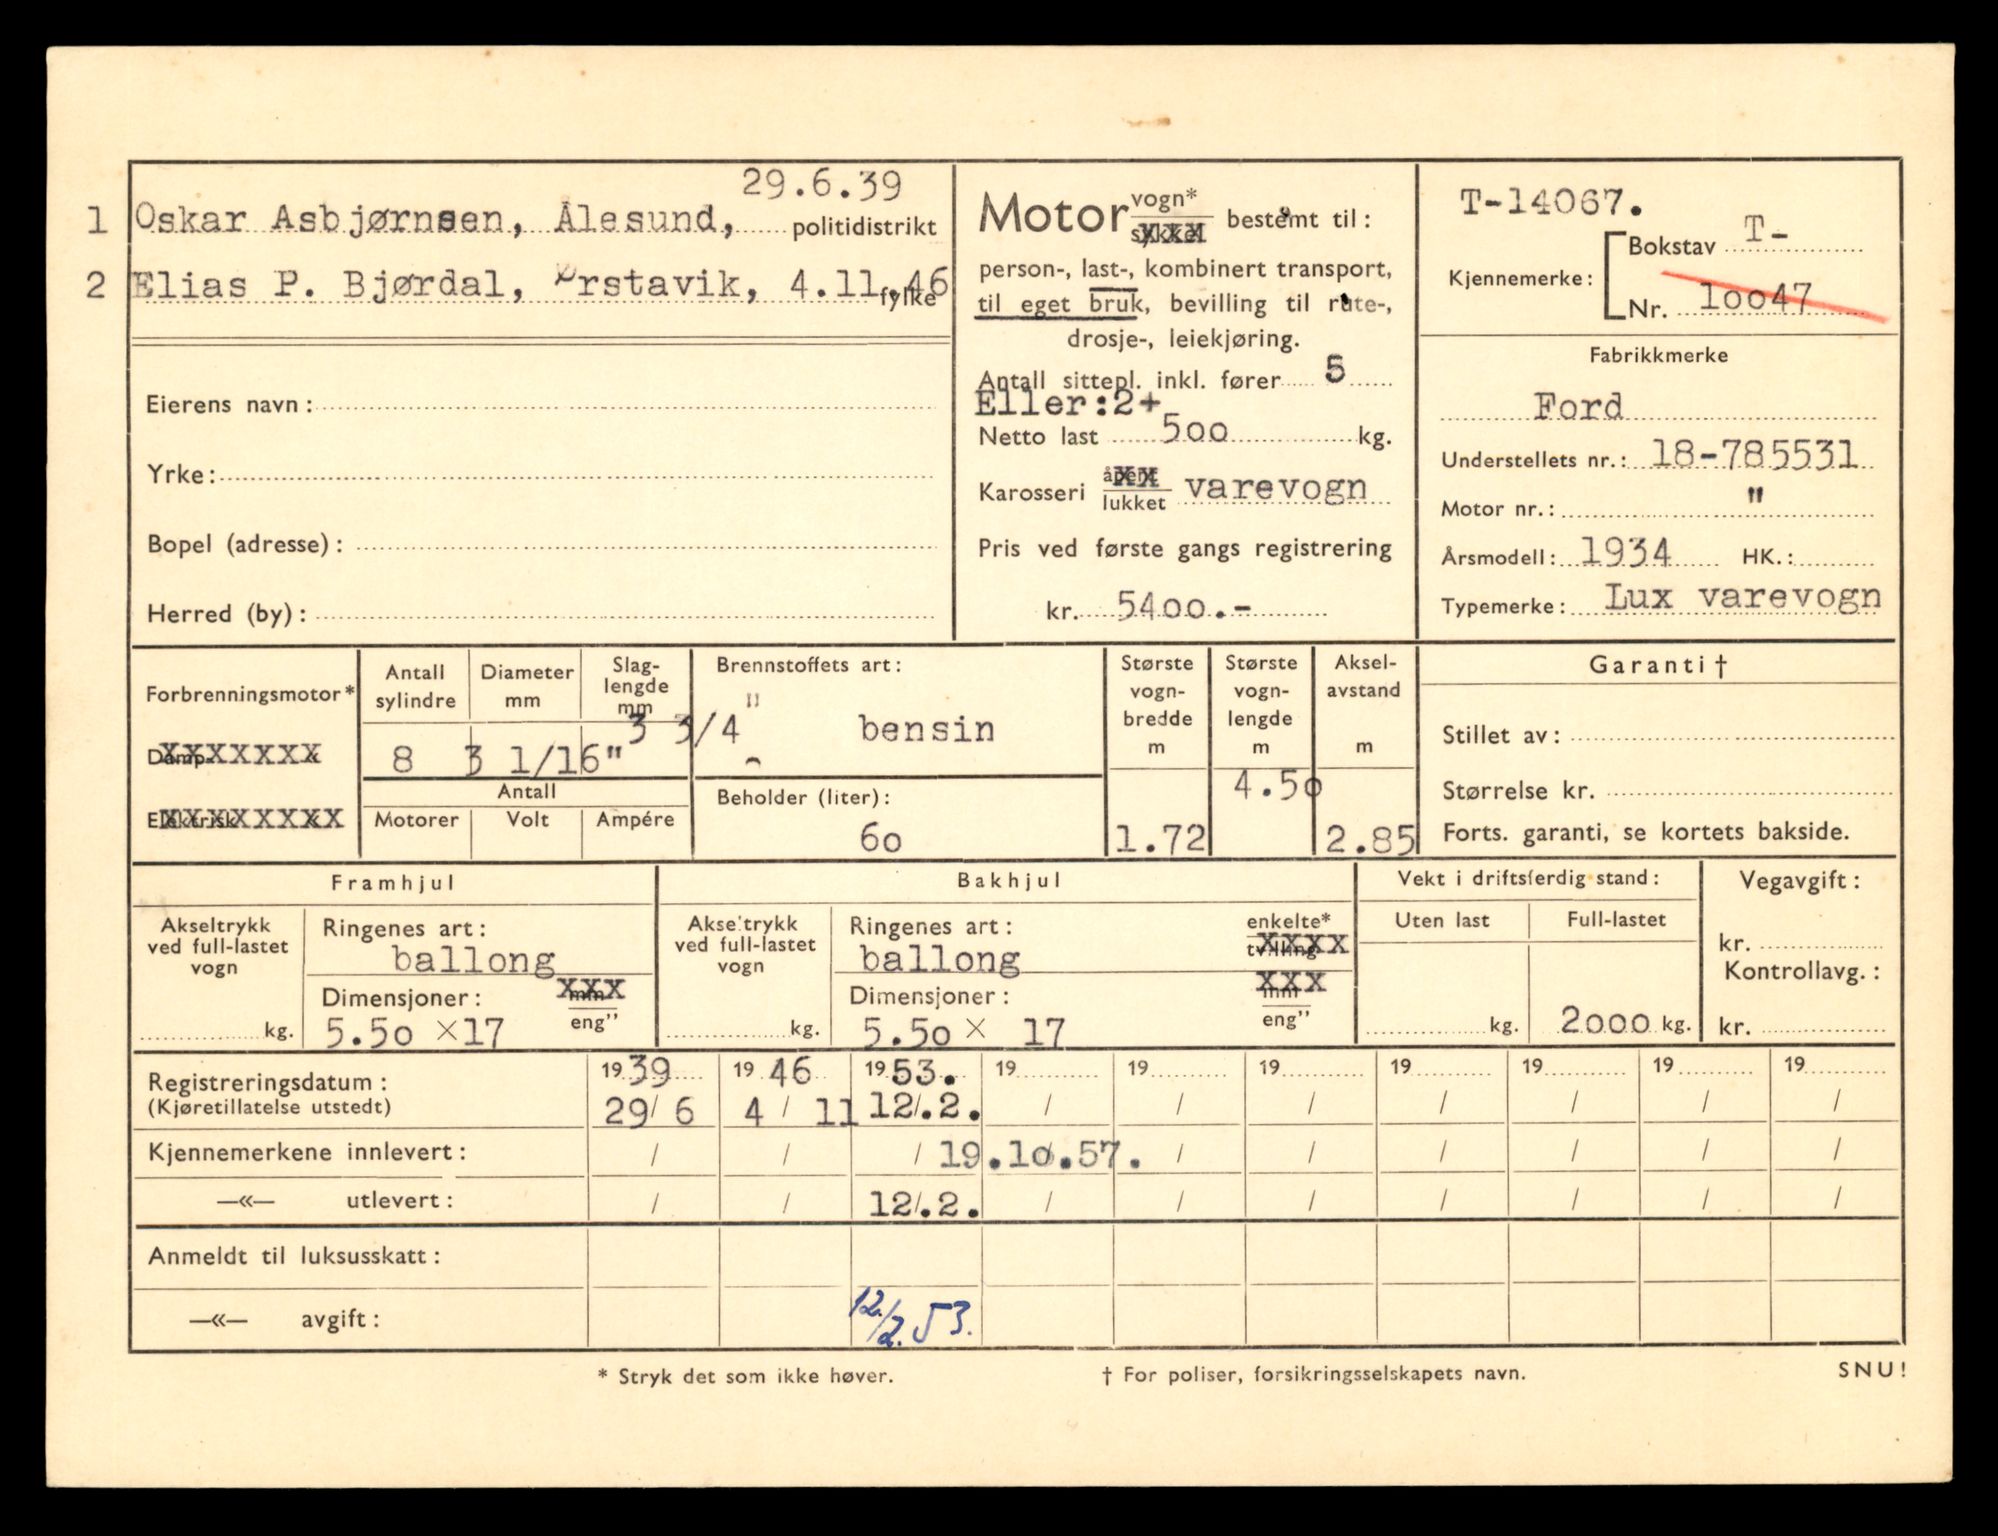 29.6.39
1 Oskar Asbjørnsen, Ålesund, politidistrikt
2 Elias P. Bjørdal, Ørstavik, 4.11.46 fylke
Eierens navn:
Yrke:
Bopel (adresse):
Herred (by):
Motor vogn* / sykkel bestemt til:
person-, last-, kombinert transport,
til eget bruk, bevilling til rute-,
drosje-, leiekjøring.
Antall sittepl. inkl. fører 5
Eller:2+
Netto last 500 kg.
Karosseri åpent / lukket varevogn
Pris ved første gangs registrering
kr. 5400.-
T-14067.
Kjennemerke: Bokstav T-
Nr. 10047
Fabrikkmerke
Ford
Understellets nr.: 18-785531
Motor nr.: "
Årsmodell: 1934 HK.:
Typemerke: Lux varevogn
Forbrenningsmotor*
Damp- xxxxxxx
Elektrisk xxxxxxxx
Antall sylindre
8
Diameter mm
3 1/16"
Slaglengde mm
3 3/4
Antall
Motorer Volt Ampére
Brennstoffets art:
" bensin
Beholder (liter):
60
Største vogn-bredde m
1.72
Største vogn-lengde m
4.50
Aksel-avstand m
2.85
Garanti †
Stillet av:
Størrelse kr.
Forts. garanti, se kortets bakside.
Framhjul
Akseltrykk ved full-lastet vogn
kg.
Ringenes art:
ballong
Dimensjoner: mm / eng"
5.50 x17
Bakhjul
Akseltrykk ved full-lastet vogn
kg.
Ringenes art: enkelte* / tvilling
ballong
Dimensjoner: mm / eng"
5.50 x 17
Vekt i driftsferdig stand:
Uten last Full-lastet
kg. 2000 kg.
Vegavgift:
kr.
Kontrollavg.:
kr.
Registreringsdatum: 1939 1946 1953. 19 19 19 19 19 19 19
(Kjøretillatelse utstedt) 29/6 4/11 12/.2. / / / / / / /
Kjennemerkene innlevert: / / / 19.10.57. / / / / / /
—«— utlevert: / / 12/.2. / / / / / / /
Anmeldt til luksusskatt:
—«— avgift: 12./2.53.
* Stryk det som ikke høver.
† For poliser, forsikringsselskapets navn.
SNU!